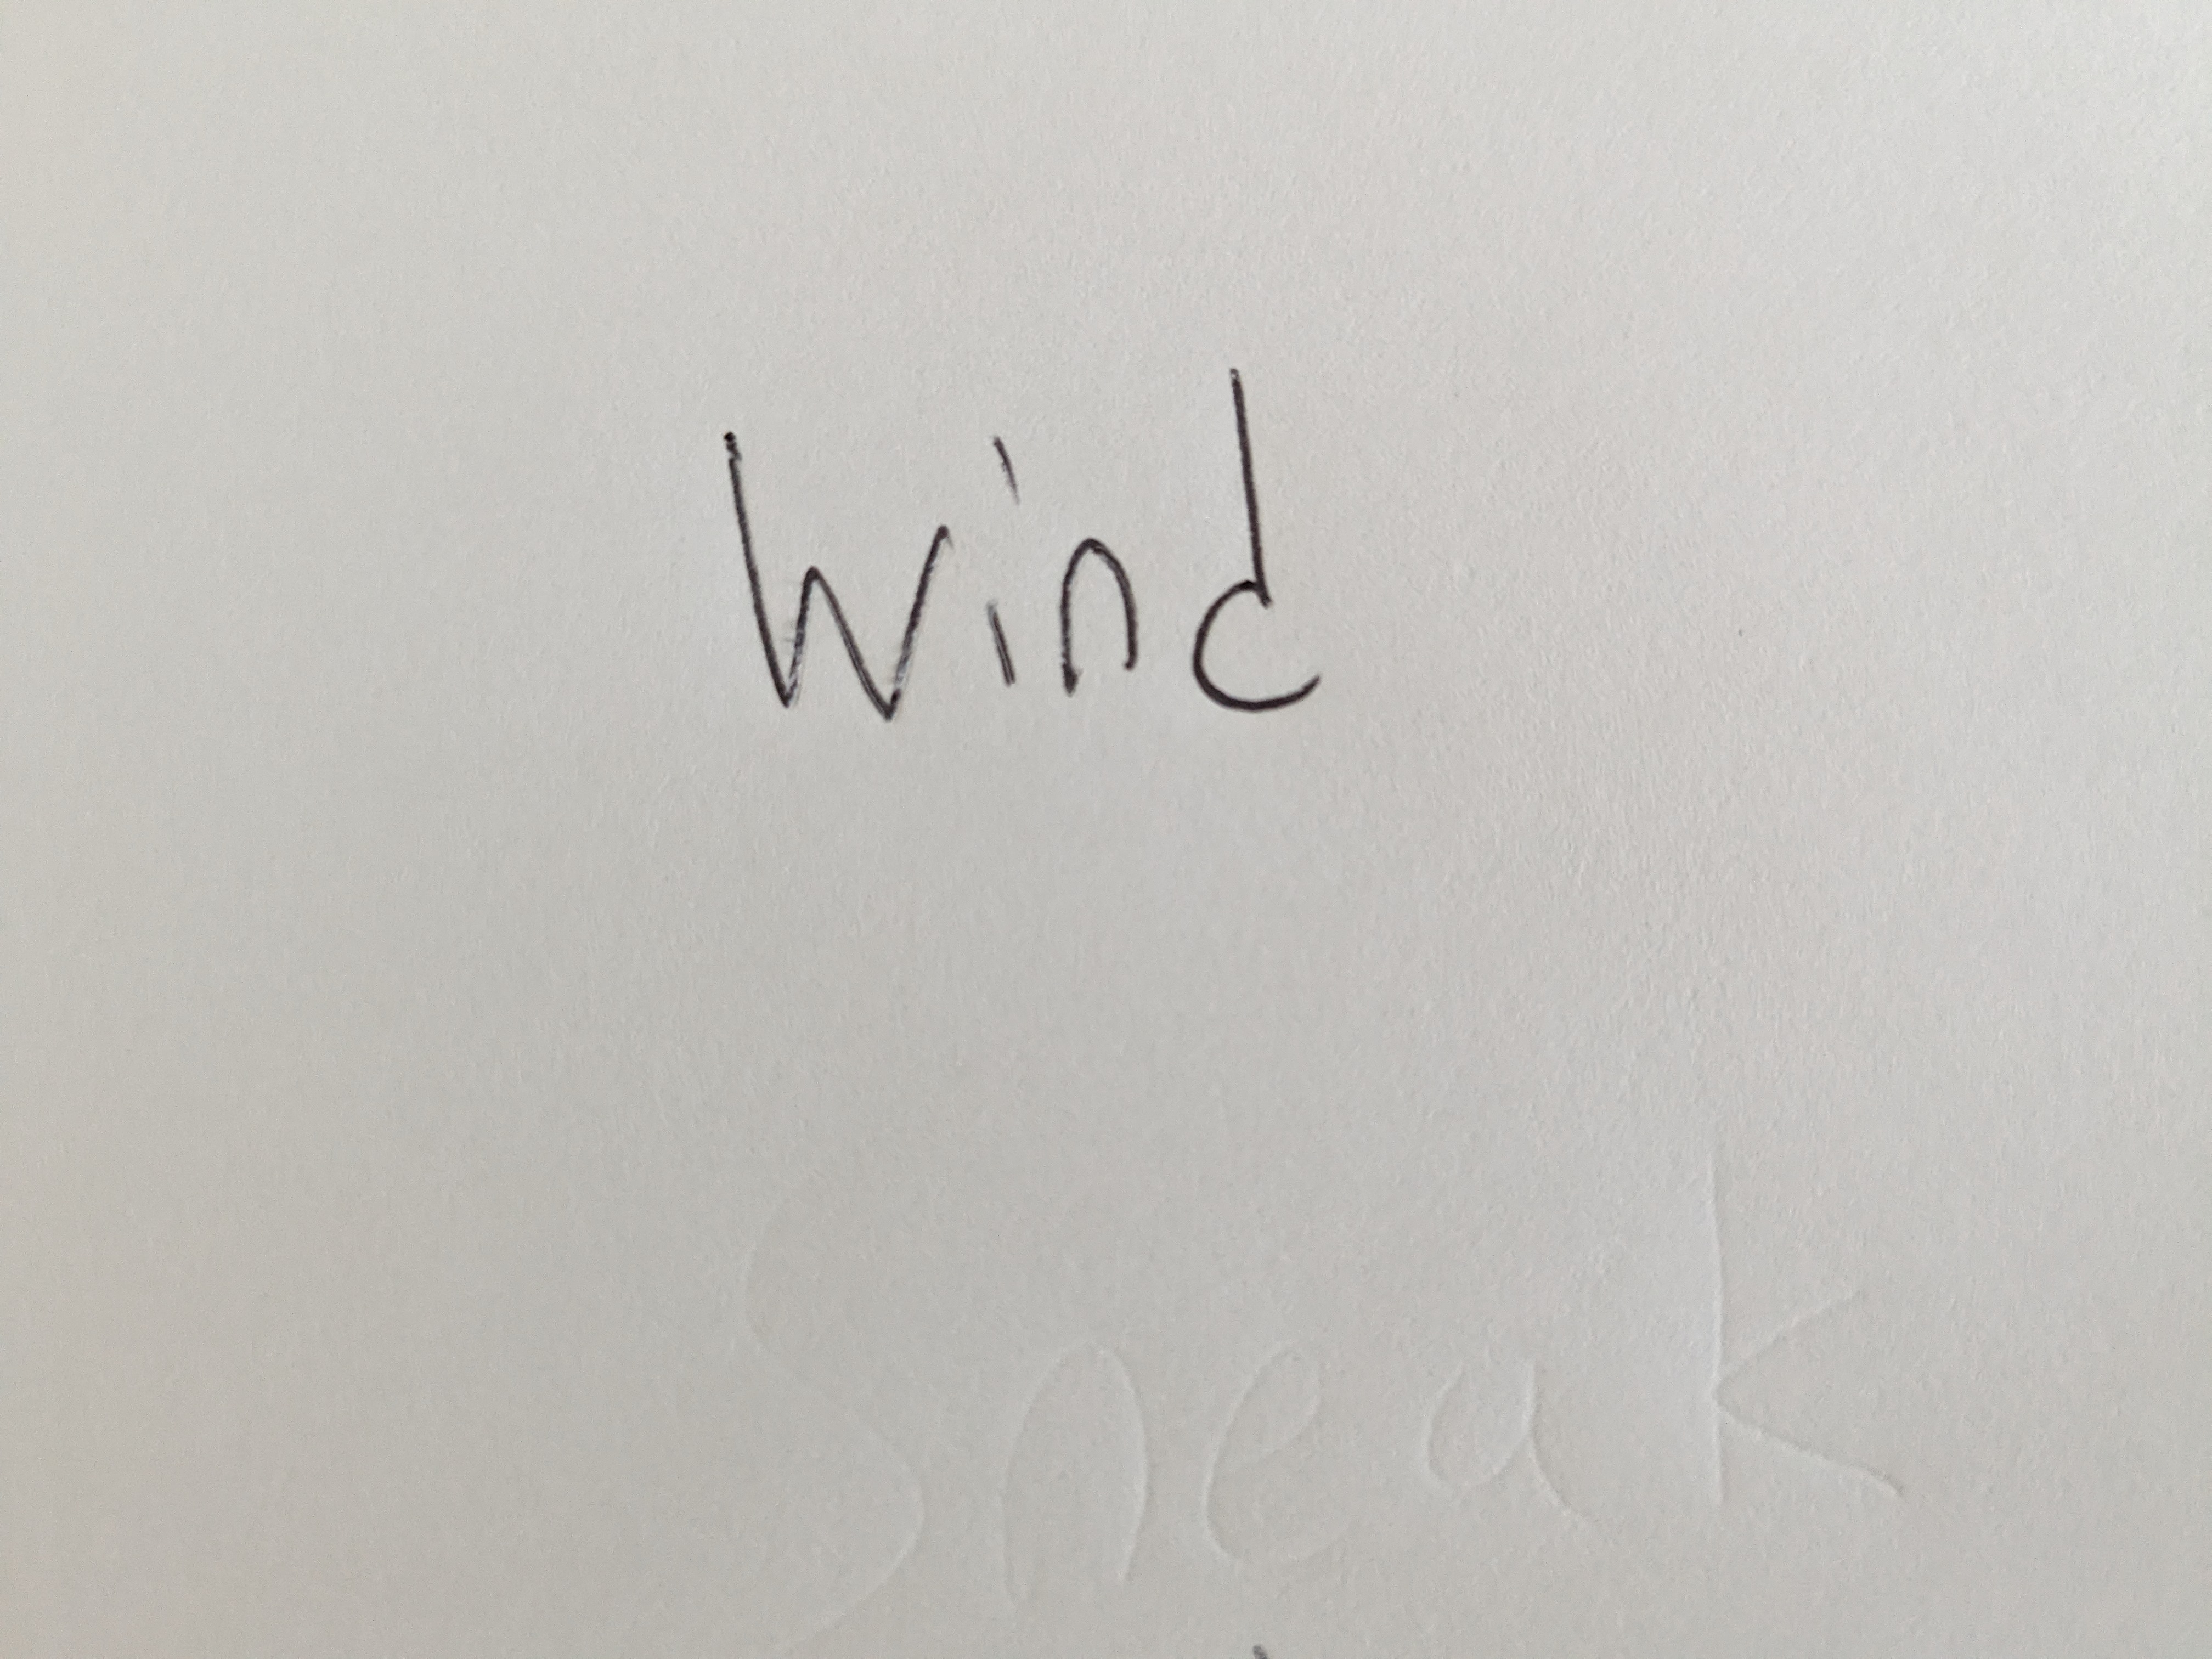 Wind
Sneak